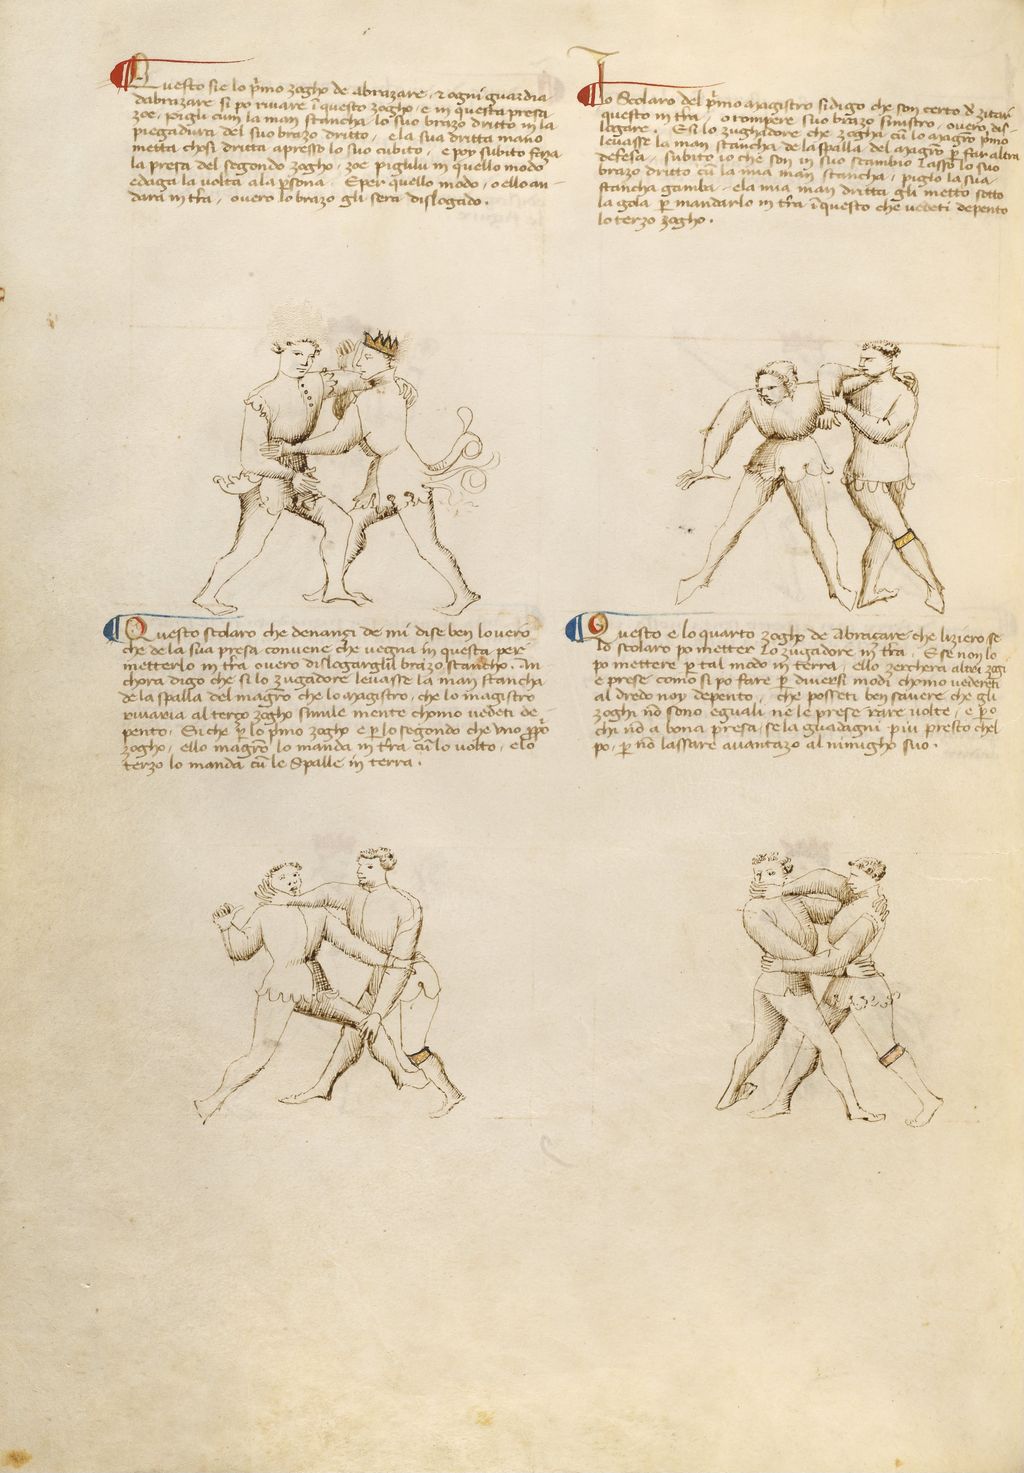 Questo sie lo p̃mo zogho de abrazare, ⁊ ogni guardia
dabrazare si po rivare ĩ questo zogho, e in questa presa
zoe, pigli cum la man stancha lo suo brazo dritto in la
piegadura del suo brazo dritto, e la sua dritta mano
metta chosi dritta apresso lo suo cubito, e poy subito faza
la presa del segondo zogho, zoe pigilu in quello modo
e daga la volta a la p̱sona. E per quello modo, o ello an-
dara in tr̃a, overo lo brazo gli sera dislogado.
Io Scolaro del p̃mo magistro si digo che son certo ḏ zitar
questo in tr̃a, o rompere suo brazo sinistro, overo dis-
logare. E si lo zughadore che zogha cũ lo magr̃o p̃mo
levasse la man stancha de la spalla del magr̃o p̱ far altra
defesa, subito io che son in suo scambio lasso lo suo
brazo dritto cũ la mia man stancha, e piglo la sua
stancha gamba, e la mia man dritta gli metto sotto
la gola p̱ mandarlo in tr̃a ĩ questo che vedeti depento
lo terzo zogho.
Questo scolaro che denançi de mi dise ben lo vero
che de la sua presa convene che vegna in questa per
metterlo in tr̃a overo dislogargli l brazo stancho. An
chora digo che si lo zugadore levasse la man stancha
de la spalla del magr̃o che lo magistro, che lo magistro
rivaria al terço zogho simile mente chomo vedeti de-
pento. Si che p̱ lo p̃mo zogho e p̱ lo segondo che uno pp̃o
zogho, ello magr̃o lo manda in tr̃a cũ lo volto, e lo
terzo lo manda cũ le spalle in terra.
Questo e lo quarto zogho de Abraçare che liziero se
lo scolaro po metter lo zugadore in tr̃a. E se non lo
po mettere p̱ tal modo in terra, ello zerchera altri zogi
e prese como si po fare p̱ diversi modi chomo vedereti
al dredo noy depento, che posseti ben savere che gli
zoghi nõ sono eguali ne le prese rare volte, e p̱o
chi nõ a bona presa, se la guadagni piu presto chel
po, p̱ nõ lassare avantazo al nimigho suo.